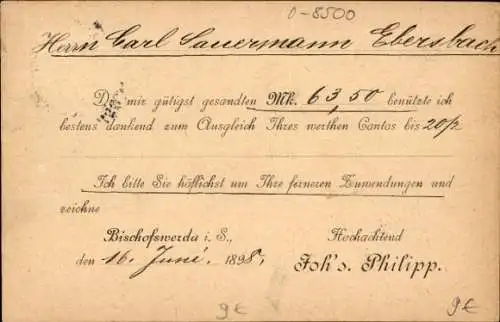 0-8500
Herrn Carl Sauermann Ebersbach
Die mir gütigst gesandten Mk. 63,50 benützte ich
bestens dankend zum Ausgleich Ihres werthen Contos bis 20/2
Ich bitte Sie höflichst um Ihre ferneren Zuwendungen und
zeichne
Bischofswerda i. S., Hochachtend
den 16. Juni 1898. Joh's. Philipp.
9€ 9€